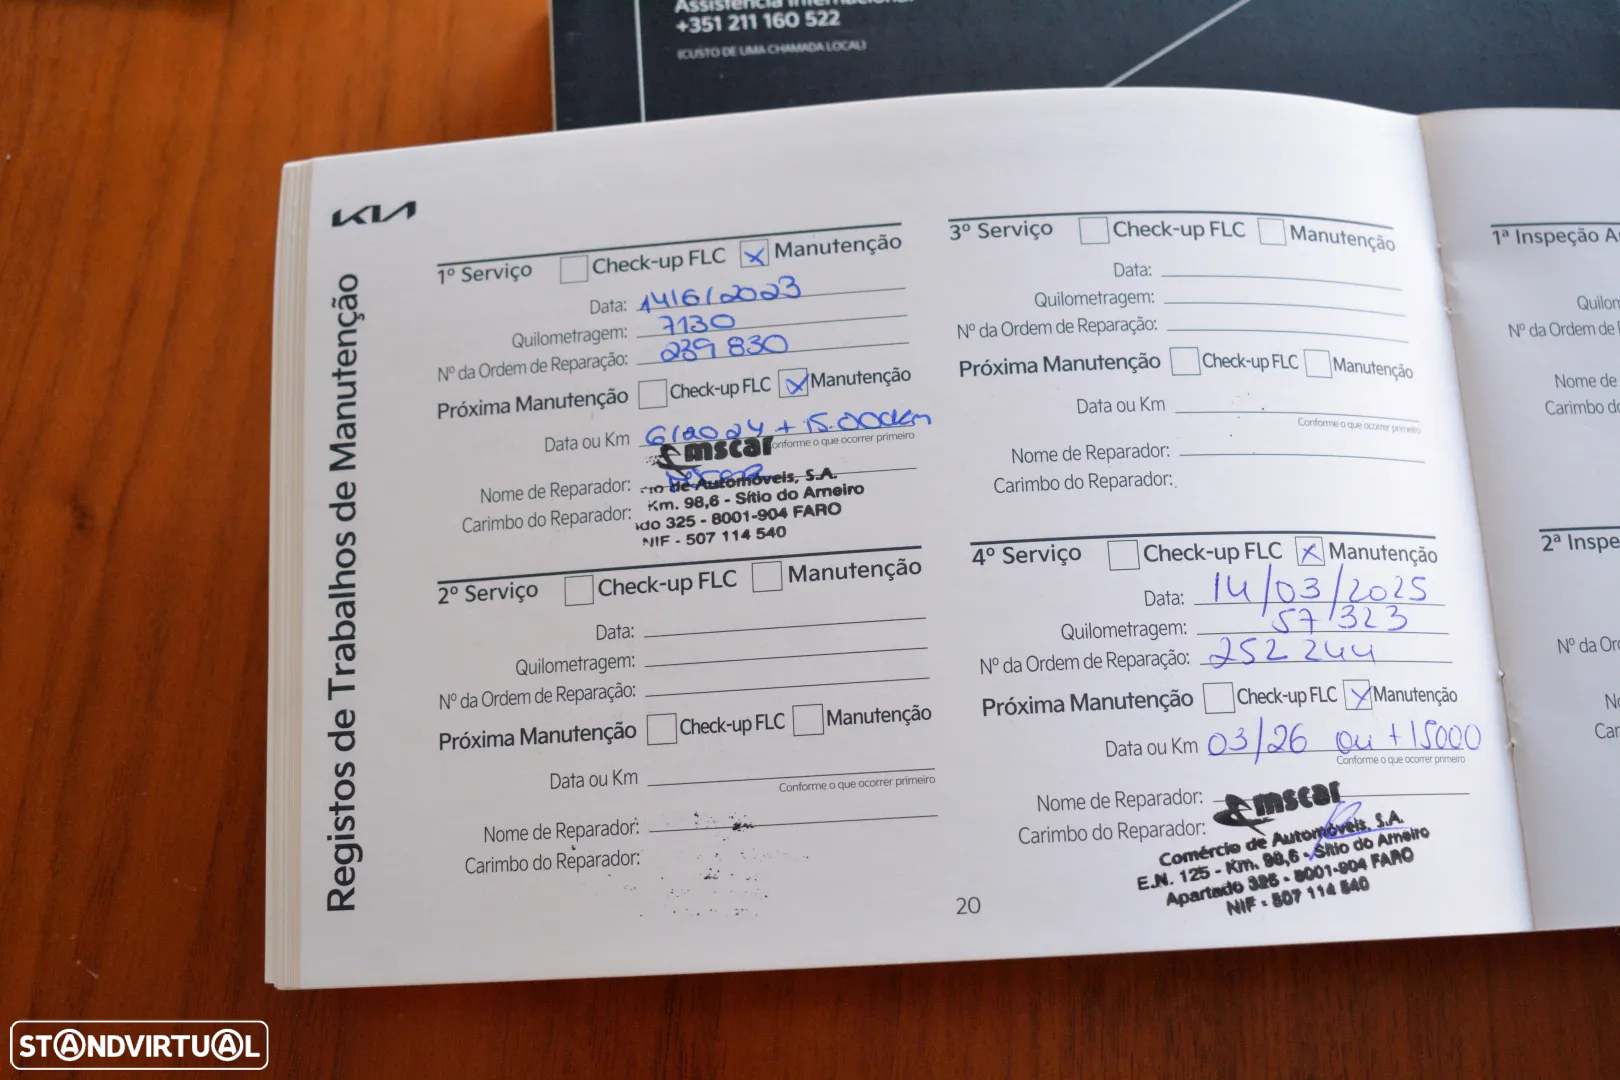 Assistência Internacional
+351 211 160 522
(CUSTO DE UMA CHAMADA LOCAL)
KIA
Registos de Trabalhos de Manutenção
1º Serviço Check-up FLC X Manutenção
Data: 14/6/2023
Quilometragem: 7130
Nº da Ordem de Reparação: 239 830
Próxima Manutenção Check-up FLC X Manutenção
Data ou Km 6/2024 + 15.000km
onforme o que ocorrer primeiro
Nome de Reparador:
Carimbo do Reparador:
mscar
io de Automóveis, S.A.
Km. 98,6 - Sítio do Arneiro
do 325 - 8001-904 FARO
NIF - 507 114 540
2º Serviço Check-up FLC Manutenção
Data:
Quilometragem:
Nº da Ordem de Reparação:
Próxima Manutenção Check-up FLC Manutenção
Data ou Km
Conforme o que ocorrer primeiro
Nome de Reparador:
Carimbo do Reparador:
3º Serviço Check-up FLC Manutenção
Data:
Quilometragem:
Nº da Ordem de Reparação:
Próxima Manutenção Check-up FLC Manutenção
Data ou Km
Conforme o que ocorrer primeiro
Nome de Reparador:
Carimbo do Reparador:
4º Serviço Check-up FLC X Manutenção
Data: 14/03/2025
Quilometragem: 57 323
Nº da Ordem de Reparação: 252 244
Próxima Manutenção Check-up FLC X Manutenção
Data ou Km 03/26 ou +15000
Conforme o que ocorrer primeiro
Nome de Reparador:
Carimbo do Reparador:
mscar
Comércio de Automóveis, S.A.
E.N. 125 - Km. 98,6 - Sítio do Arneiro
Apartado 325 - 8001-904 FARO
NIF - 507 114 540
20
1ª Inspeção A
Quilom
Nº da Ordem de R
Nome de
Carimbo do
2ª Inspe
Nº da Or
No
Car
STANDVIRTUAL